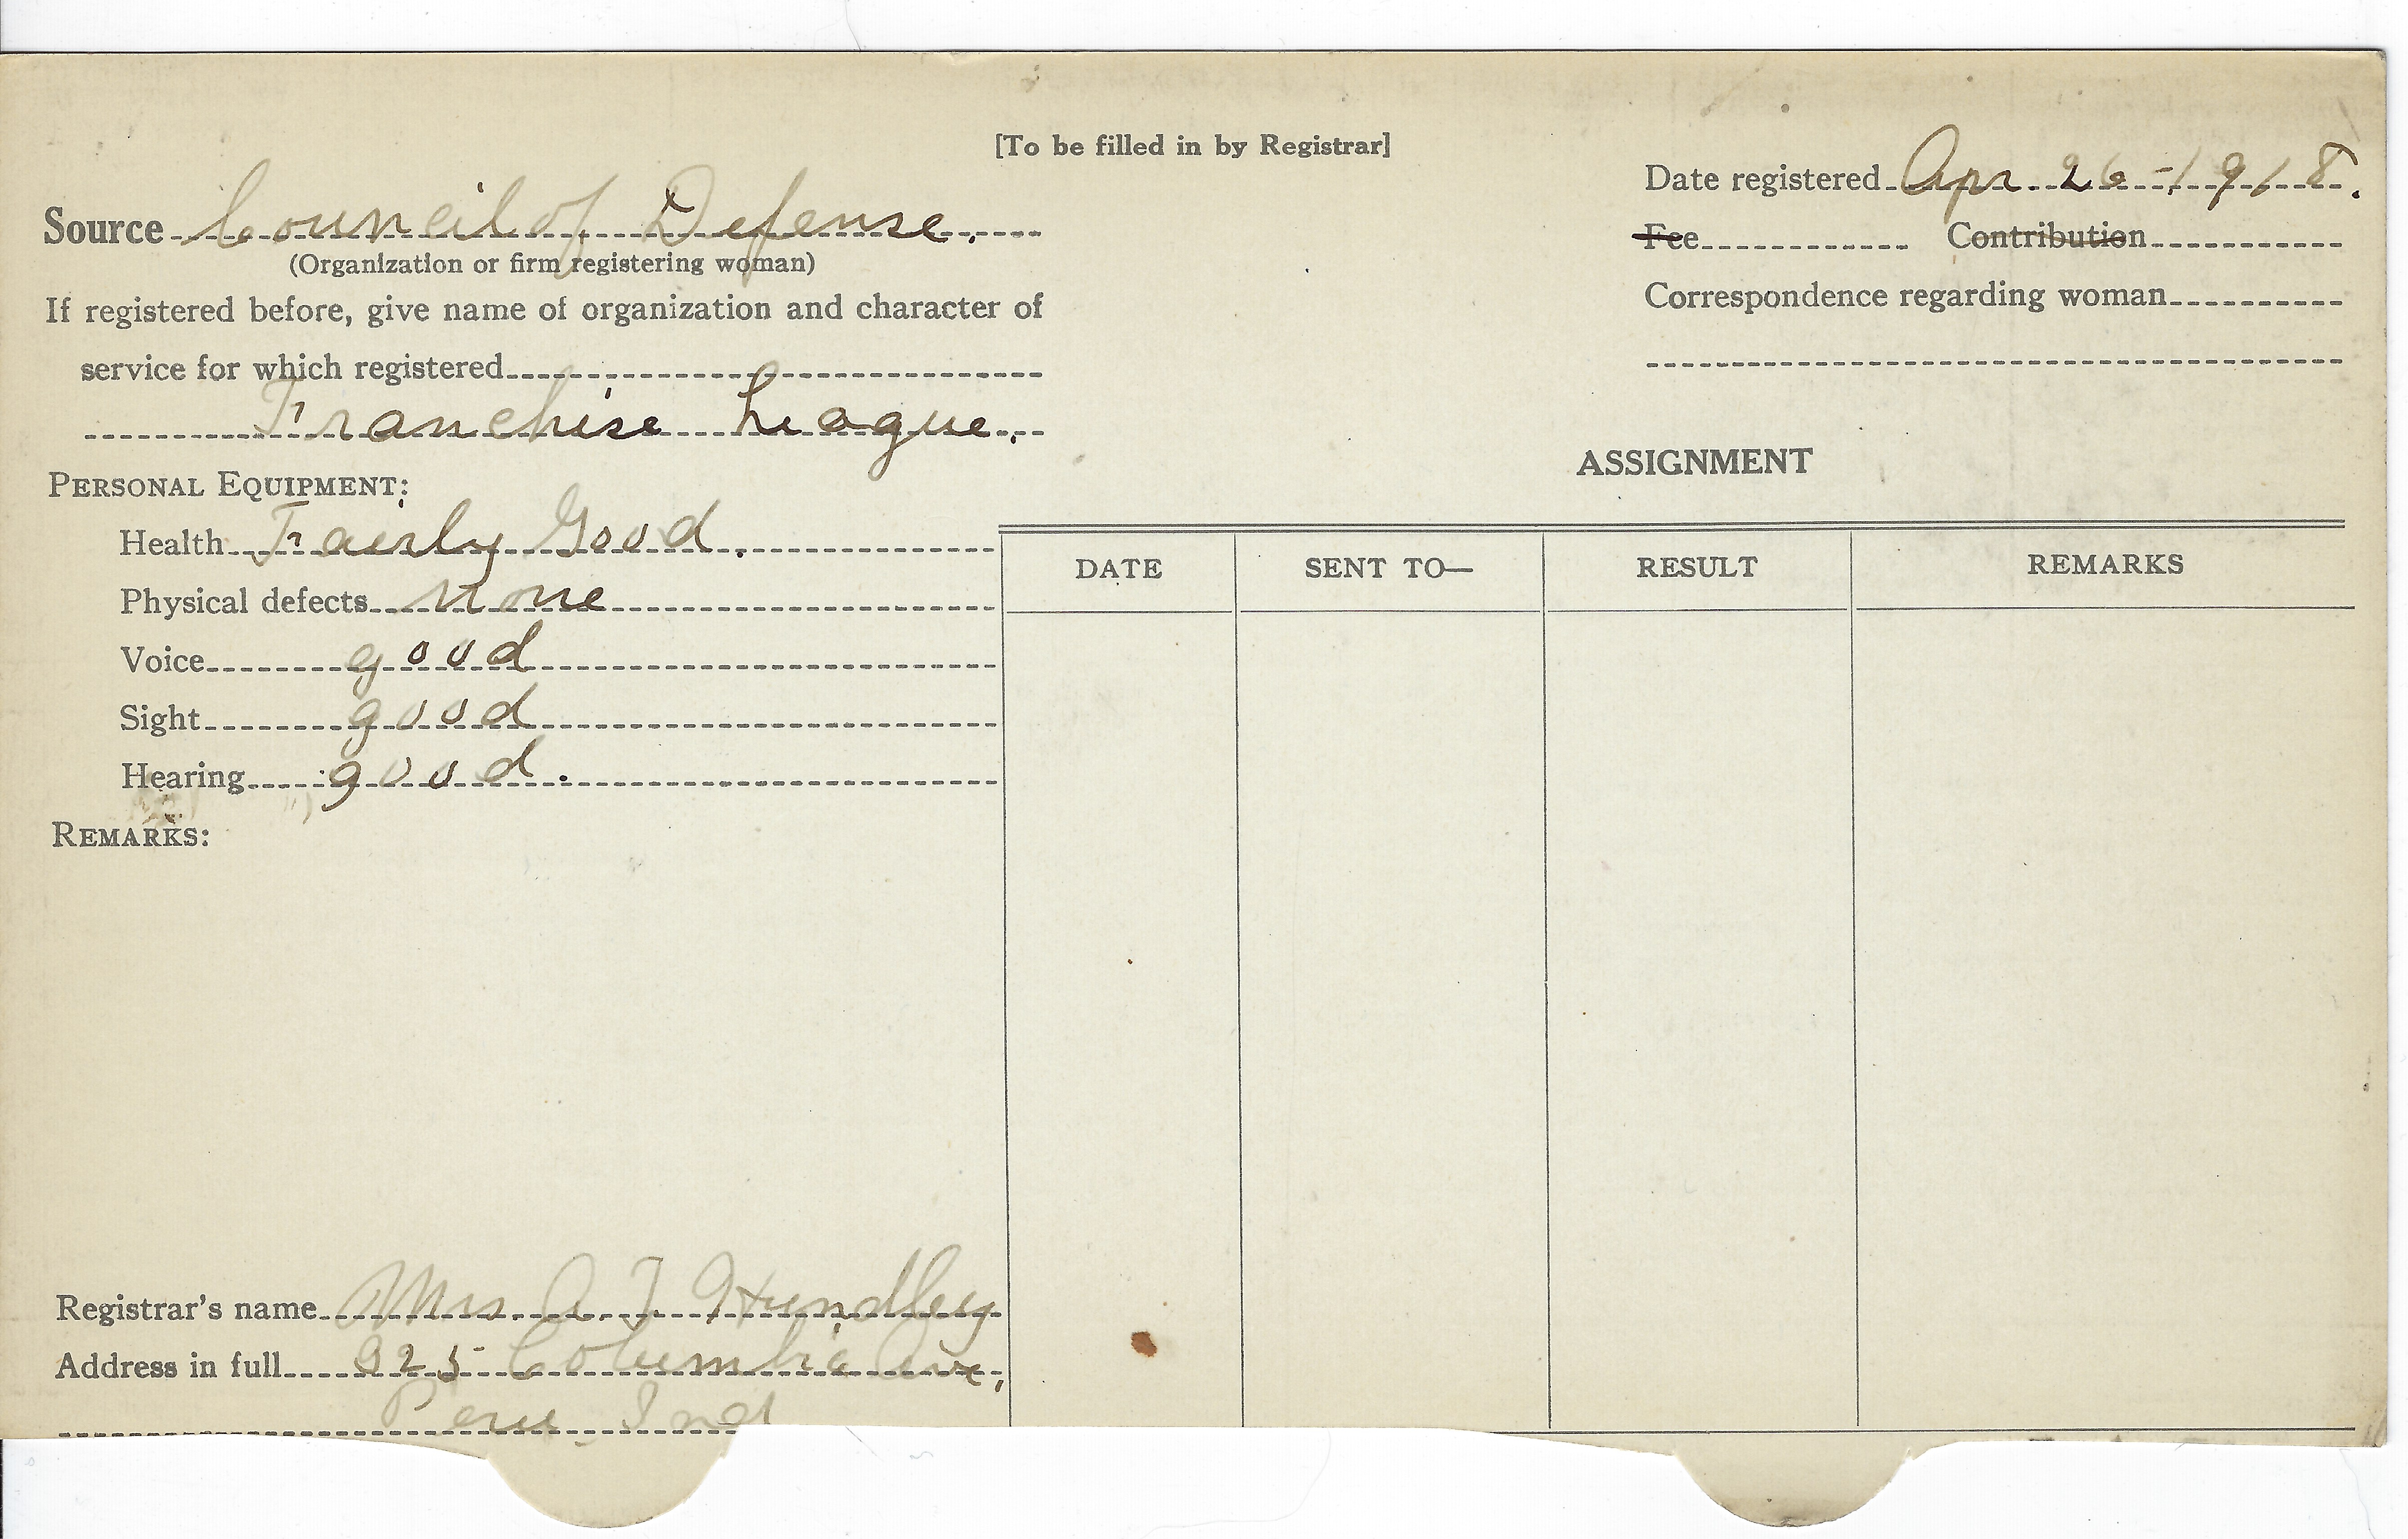 [To be filled in by Registrar]
Source Council of Defense.
(Organization or firm registering woman)
If registered before, give name of organization and character of
service for which registered
Franchise League.
PERSONAL EQUIPMENT:
Health Fairly Good.
Physical defects none
Voice good
Sight good
Hearing good.
REMARKS:
Registrar's name Mrs. A J Hundley
Address in full 325 Columbia Ave,
Peru Ind
Date registered Apr. 26-1918.
Fee Contribution
Correspondence regarding woman
ASSIGNMENT
DATE SENT TO— RESULT REMARKS